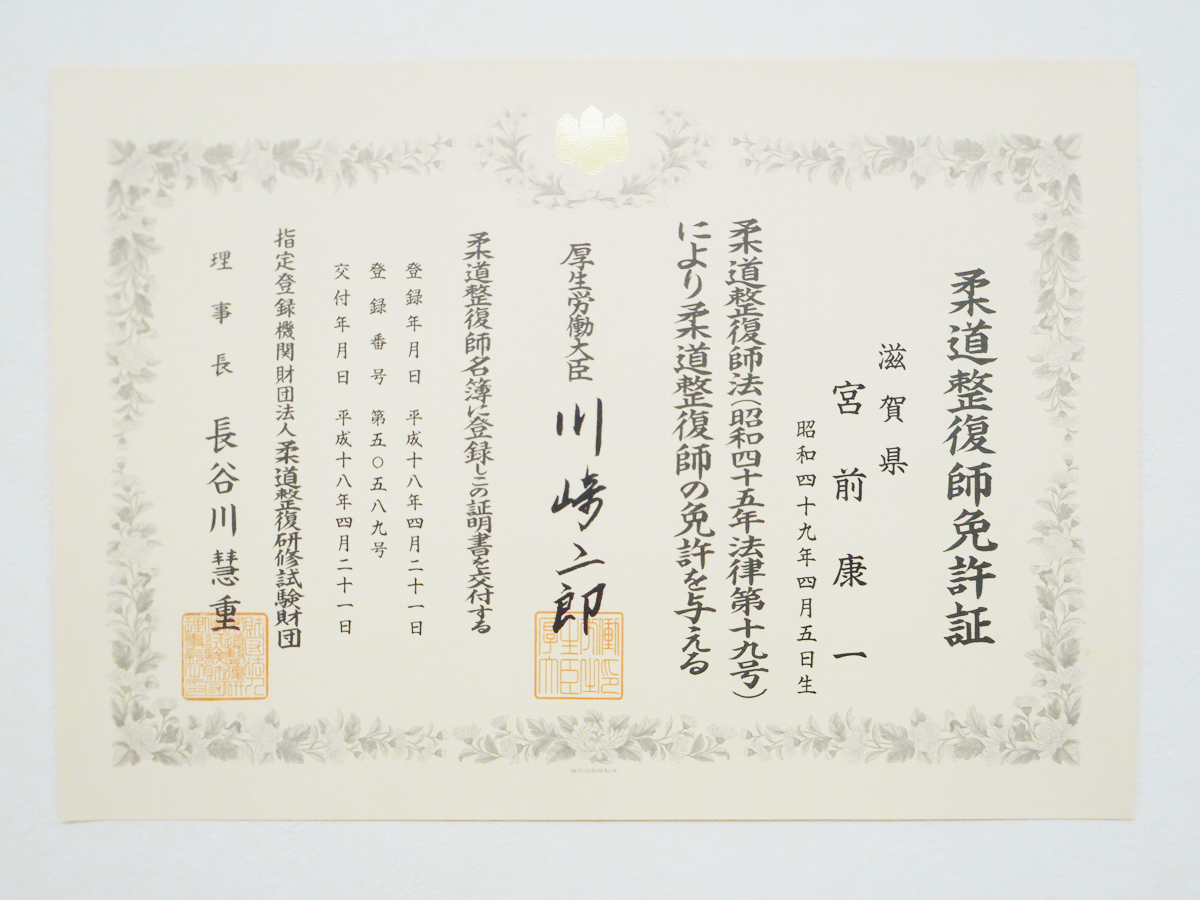 柔道整復師免許証
滋賀県
宮前康一
昭和四十九年四月五日生
柔道整復師法(昭和四十五年法律第十九号)
により柔道整復師の免許を与える
厚生労働大臣 川崎二郎
柔道整復師名簿に登録しこの証明書を交付する
登録年月日 平成十八年四月二十一日
登録番号 第五〇五八九号
交付年月日 平成十八年四月二十一日
指定登録機関財団法人柔道整復研修試験財団
理事長 長谷川慧重